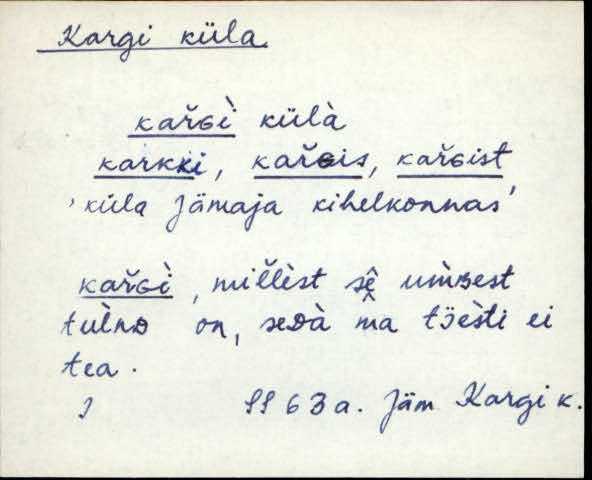 Kargi küla
kař̆ɢì külà
karkki, kař̆ɢis, kař̆ɢist,
'küla Jämaja kihelkonnas'
kař̆ɢì, mil̆lèst sê ùmʙest
tùlnᴅ on, seᴅà m̂a tɪ̈èsti ei
tea.
63 a. Jäm Kargi k.